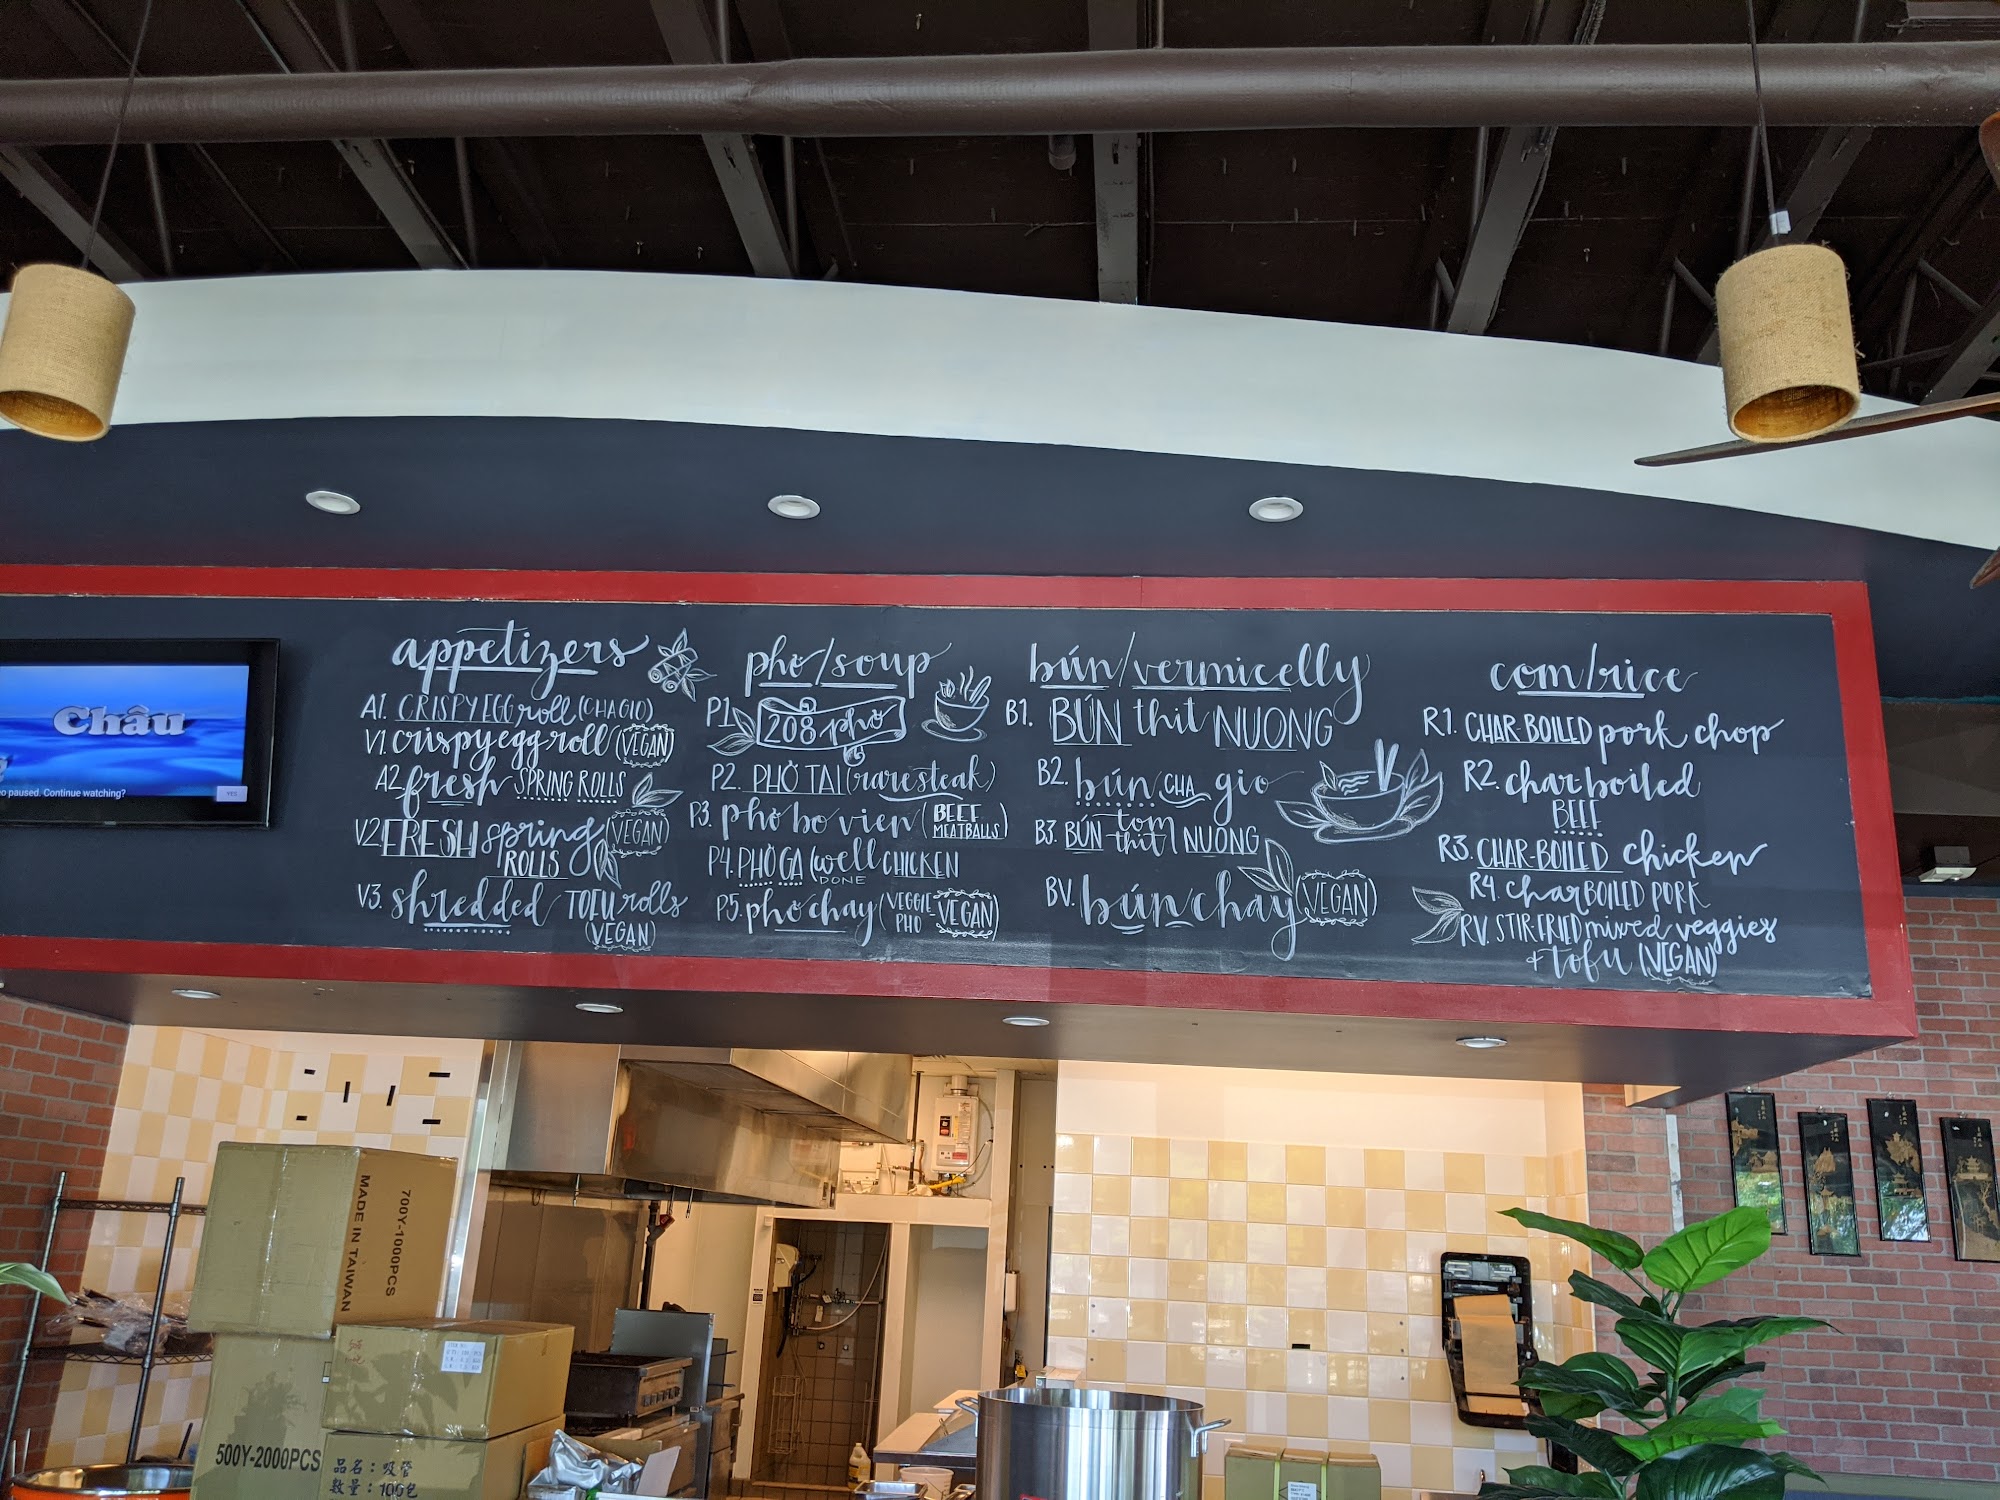 appetizers
A1. CRISPY EGG roll (CHA GIO)
V1. crispy egg roll (VEGAN)
A2 fresh SPRING ROLLS
V2. FRESH spring (VEGAN)
ROLLS
V3. shredded TOFU rolls
(VEGAN)
phở/soup
P1 208 phở
P2. PHỞ TAI (rare steak)
P3. phở bo vien (BEEF
MEATBALLS)
P4. PHỞ GA (well CHICKEN
DONE
P5. phở chay (VEGGIE
PHO - VEGAN)
bún/vermicelly
B1. BÚN thit NUONG
B2. bún CHA gio
B3. BÚN tom NUONG
thit
BV. bún chay (VEGAN)
com/rice
R1. CHAR-BOILED pork chop
R2. char-boiled
BEEF
R3. CHAR-BOILED chicken
R4. char BOILED PORK
RV. STIR-FRIED mixed veggies
+ tofu (VEGAN)
Châu
paused. Continue watching?
YES
700Y-10000PCS
MADE IN TAIWAN
500Y-2000PCS
品名：吸管
數量：100包